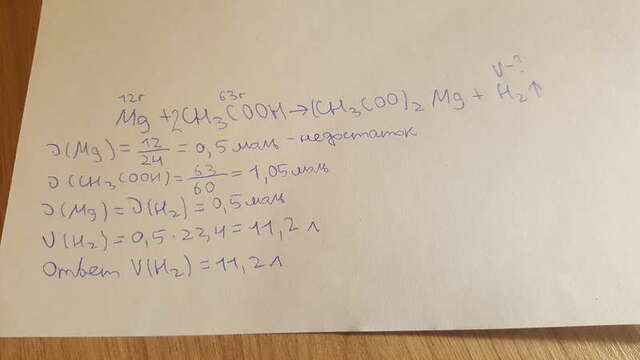 V-?
12г 63г
Mg + 2CH₃COOH → (CH₃COO)₂Mg + H₂↑
ν(Mg) = 12/24 = 0,5 маль - недостаток
ν(CH₃COOH) = 63/60 = 1,05 маль
ν(Mg) = ν(H₂) = 0,5 маль
V(H₂) = 0,5 · 22,4 = 11,2 л
Ответ V(H₂) = 11,2 л